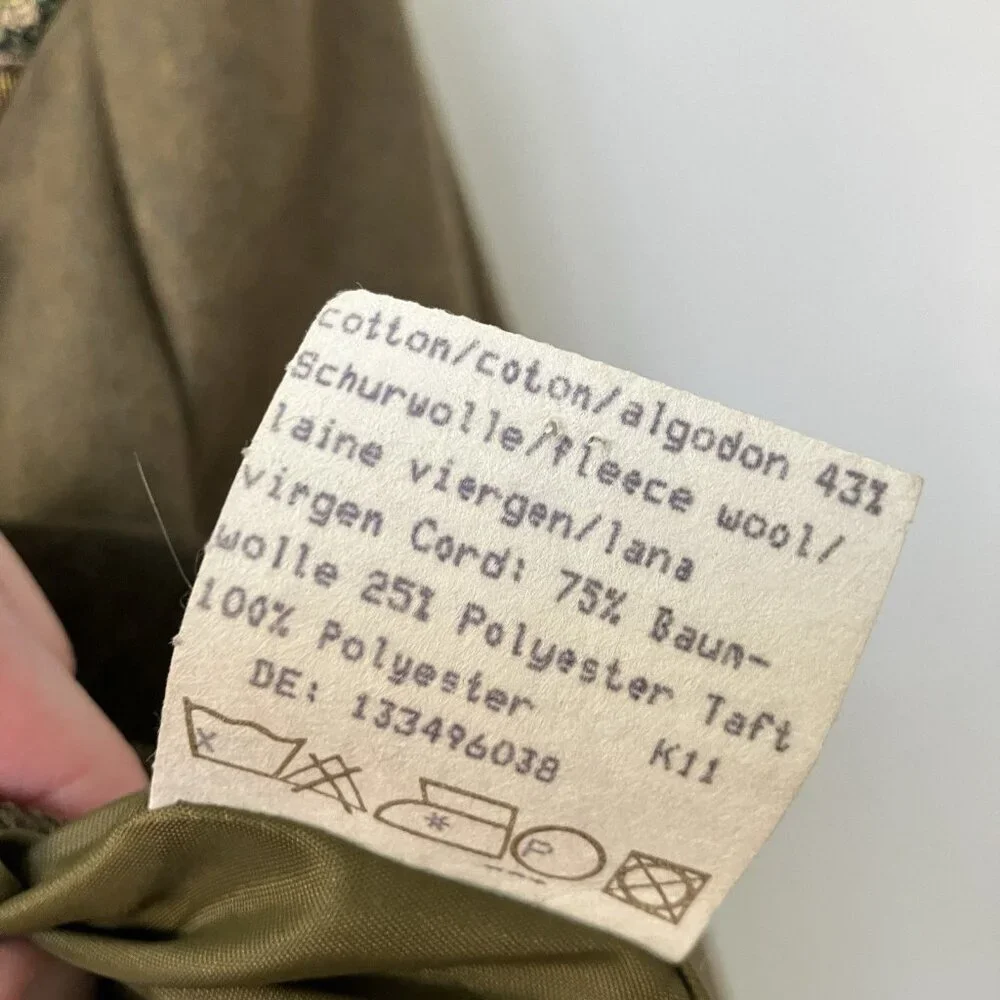 cotton/coton/algodon 43%
Schurwolle/fleece wool/
laine viergen/lana
virgen Cord: 75% Baum-
wolle 25% Polyester Taft
100% Polyester
DE: 133496038 K11
P